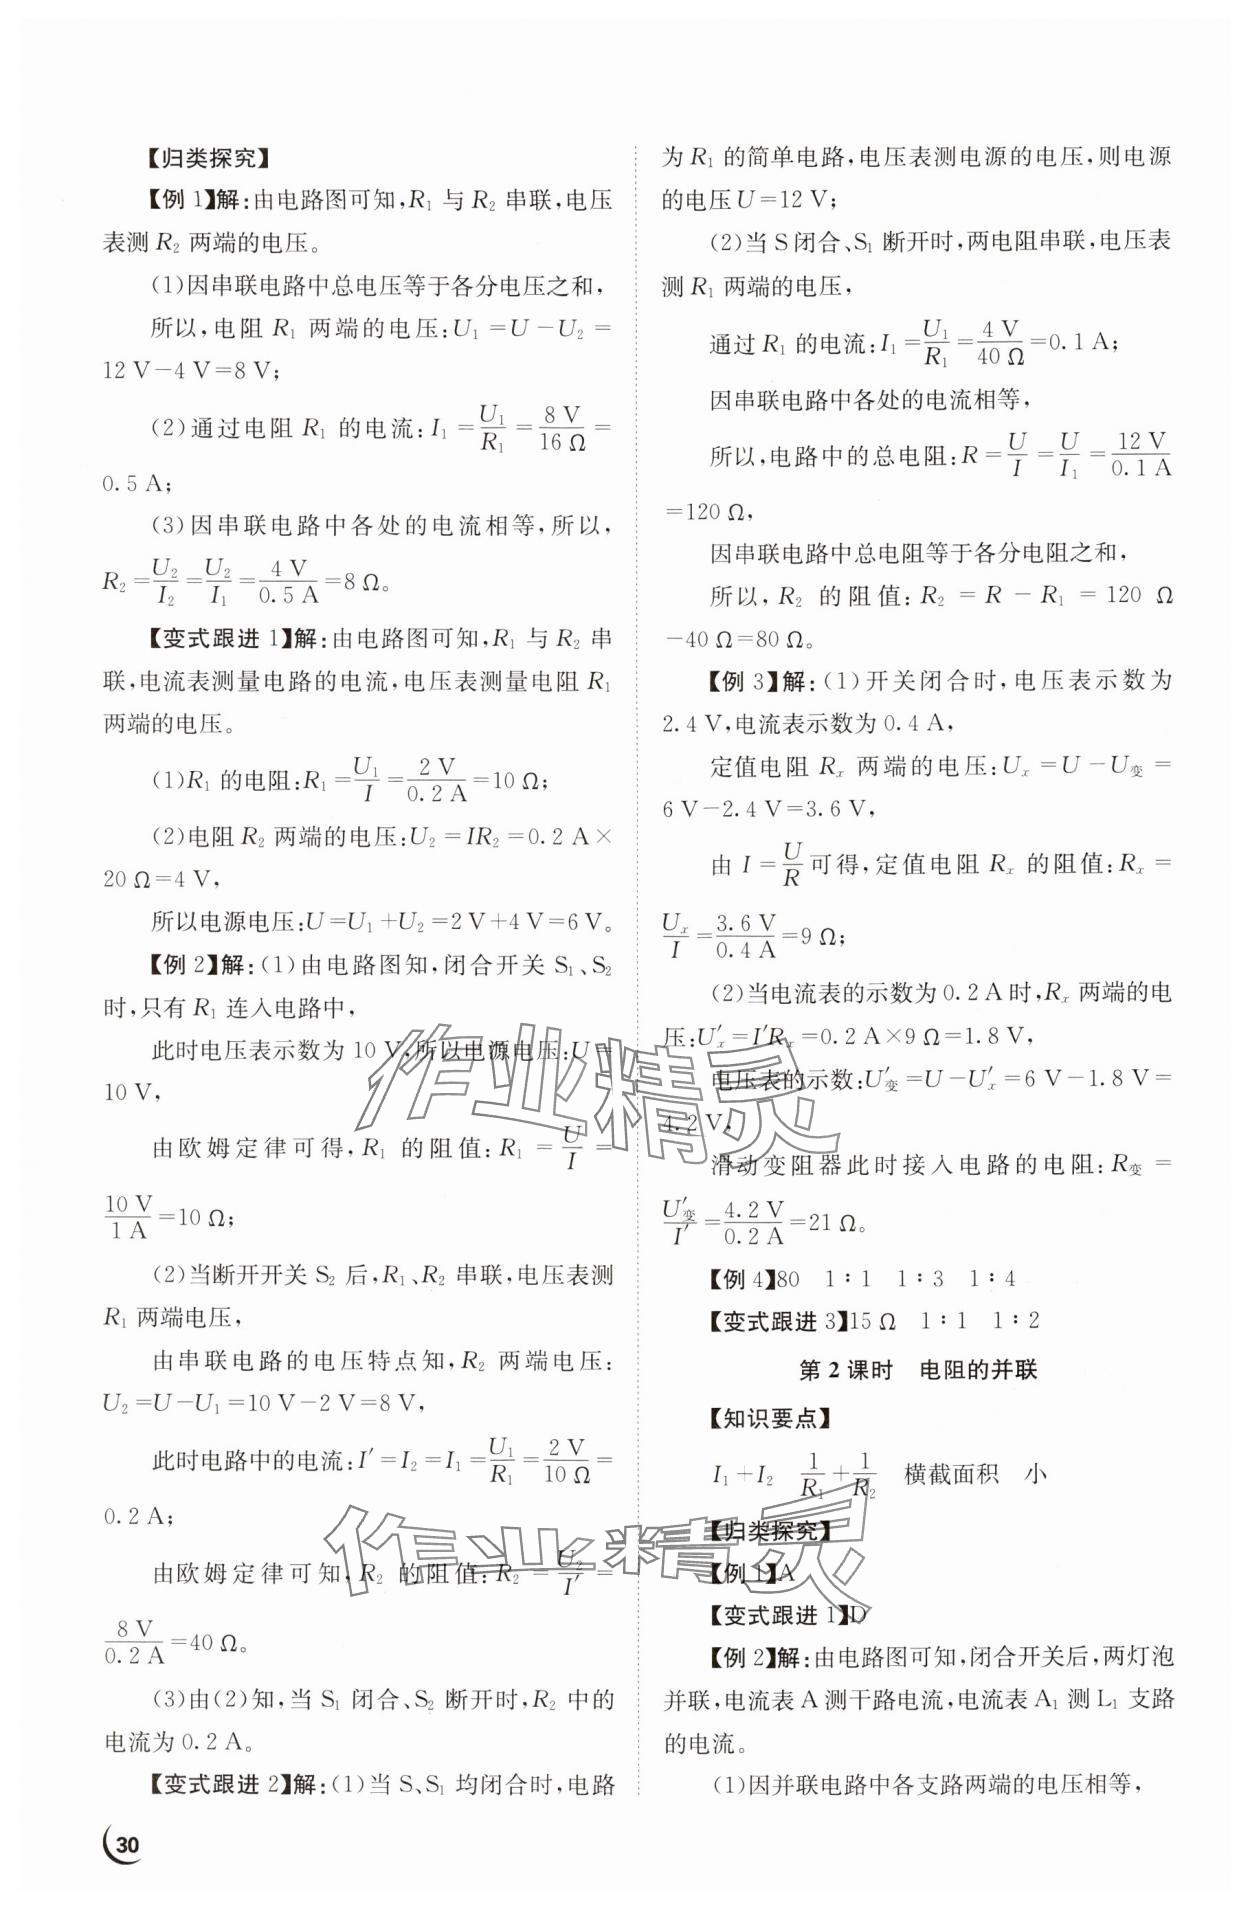 【归类探究】
【例 1】解:由电路图可知,R₁ 与 R₂ 串联,电压
表测 R₂ 两端的电压。
(1)因串联电路中总电压等于各分电压之和,
所以,电阻 R₁ 两端的电压:U₁=U-U₂=
12 V-4 V=8 V;
(2)通过电阻 R₁ 的电流:I₁=U₁/R₁=8 V/16 Ω=
0.5 A;
(3)因串联电路中各处的电流相等,所以,
R₂=U₂/I₂=U₂/I₁=4 V/0.5 A=8 Ω。
【变式跟进 1】解:由电路图可知,R₁ 与 R₂ 串
联,电流表测量电路的电流,电压表测量电阻 R₁
两端的电压。
(1)R₁ 的电阻:R₁=U₁/I=2 V/0.2 A=10 Ω;
(2)电阻 R₂ 两端的电压:U₂=IR₂=0.2 A×
20 Ω=4 V,
所以电源电压:U=U₁+U₂=2 V+4 V=6 V。
【例 2】解:(1)由电路图知,闭合开关 S₁、S₂
时,只有 R₁ 连入电路中,
此时电压表示数为 10 V,所以电源电压:U=
10 V,
由欧姆定律可得,R₁ 的阻值:R₁=U/I=
10 V/1 A=10 Ω;
(2)当断开开关 S₂ 后,R₁、R₂ 串联,电压表测
R₁ 两端电压,
由串联电路的电压特点知,R₂ 两端电压:
U₂=U-U₁=10 V-2 V=8 V,
此时电路中的电流:I′=I₂=I₁=U₁/R₁=2 V/10 Ω=
0.2 A;
由欧姆定律可知,R₂ 的阻值:R₂=U₂/I′=
8 V/0.2 A=40 Ω。
(3)由(2)知,当 S₁ 闭合、S₂ 断开时,R₂ 中的
电流为 0.2 A。
【变式跟进 2】解:(1)当 S、S₁ 均闭合时,电路
30
为 R₁ 的简单电路,电压表测电源的电压,则电源
的电压 U=12 V;
(2)当 S 闭合、S₁ 断开时,两电阻串联,电压表
测 R₁ 两端的电压,
通过 R₁ 的电流:I₁=U₁/R₁=4 V/40 Ω=0.1 A;
因串联电路中各处的电流相等,
所以,电路中的总电阻:R=U/I=U/I₁=12 V/0.1 A
=120 Ω,
因串联电路中总电阻等于各分电阻之和,
所以,R₂ 的阻值:R₂=R-R₁=120 Ω
-40 Ω=80 Ω。
【例 3】解:(1)开关闭合时,电压表示数为
2.4 V,电流表示数为 0.4 A,
定值电阻 Rₓ 两端的电压:Uₓ=U-U变=
6 V-2.4 V=3.6 V,
由 I=U/R可得,定值电阻 Rₓ 的阻值:Rₓ=
Uₓ/I=3.6 V/0.4 A=9 Ω;
(2)当电流表的示数为 0.2 A 时,Rₓ 两端的电
压:U′ₓ=I′Rₓ=0.2 A×9 Ω=1.8 V,
电压表的示数:U′变=U-U′ₓ=6 V-1.8 V=
4.2 V,
滑动变阻器此时接入电路的电阻:R变=
U′变/I′=4.2 V/0.2 A=21 Ω。
【例 4】80 1∶1 1∶3 1∶4
【变式跟进 3】15 Ω 1∶1 1∶2
第 2 课时 电阻的并联
【知识要点】
I₁+I₂ 1/R₁+1/R₂ 横截面积 小
【归类探究】
【例 1】A
【变式跟进 1】D
【例 2】解:由电路图可知,闭合开关后,两灯泡
并联,电流表 A 测干路电流,电流表 A₁ 测 L₁ 支路
的电流。
(1)因并联电路中各支路两端的电压相等,
作业精灵
作业精灵